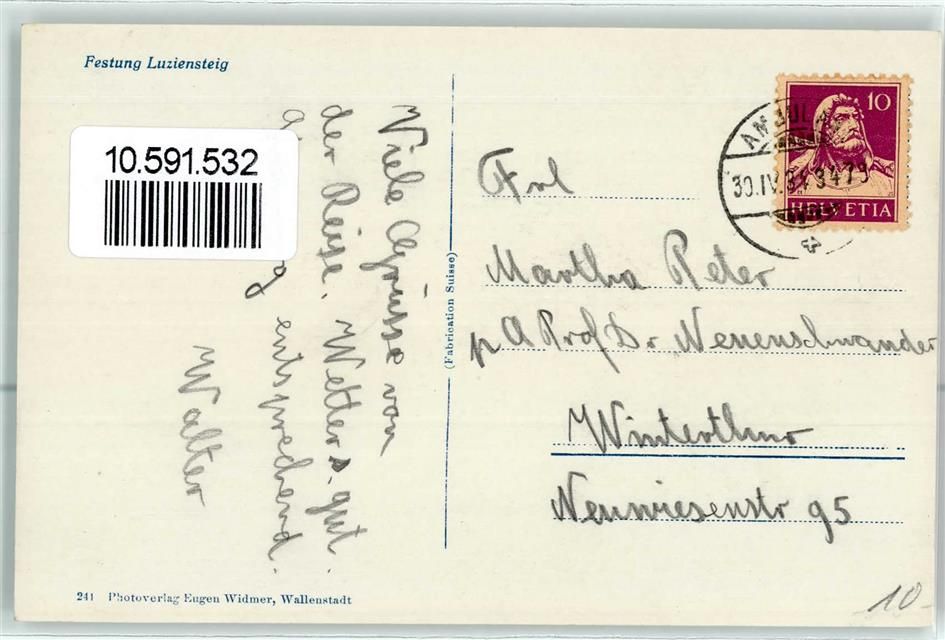 Festung Luziensteig
10.591.532
Viele Grüsse von
der Reise. Wetter s. gut.
entsprechend.
Walter
(Fabrication Suisse)
10
HELVETIA
AMBUL
30.IV.31 3479
Frl
Martha Peter
p A Prof Dr Neuenschwander
Winterthur
Neuwiesenstr 95
241 Photoverlag Eugen Widmer, Wallenstadt
10-